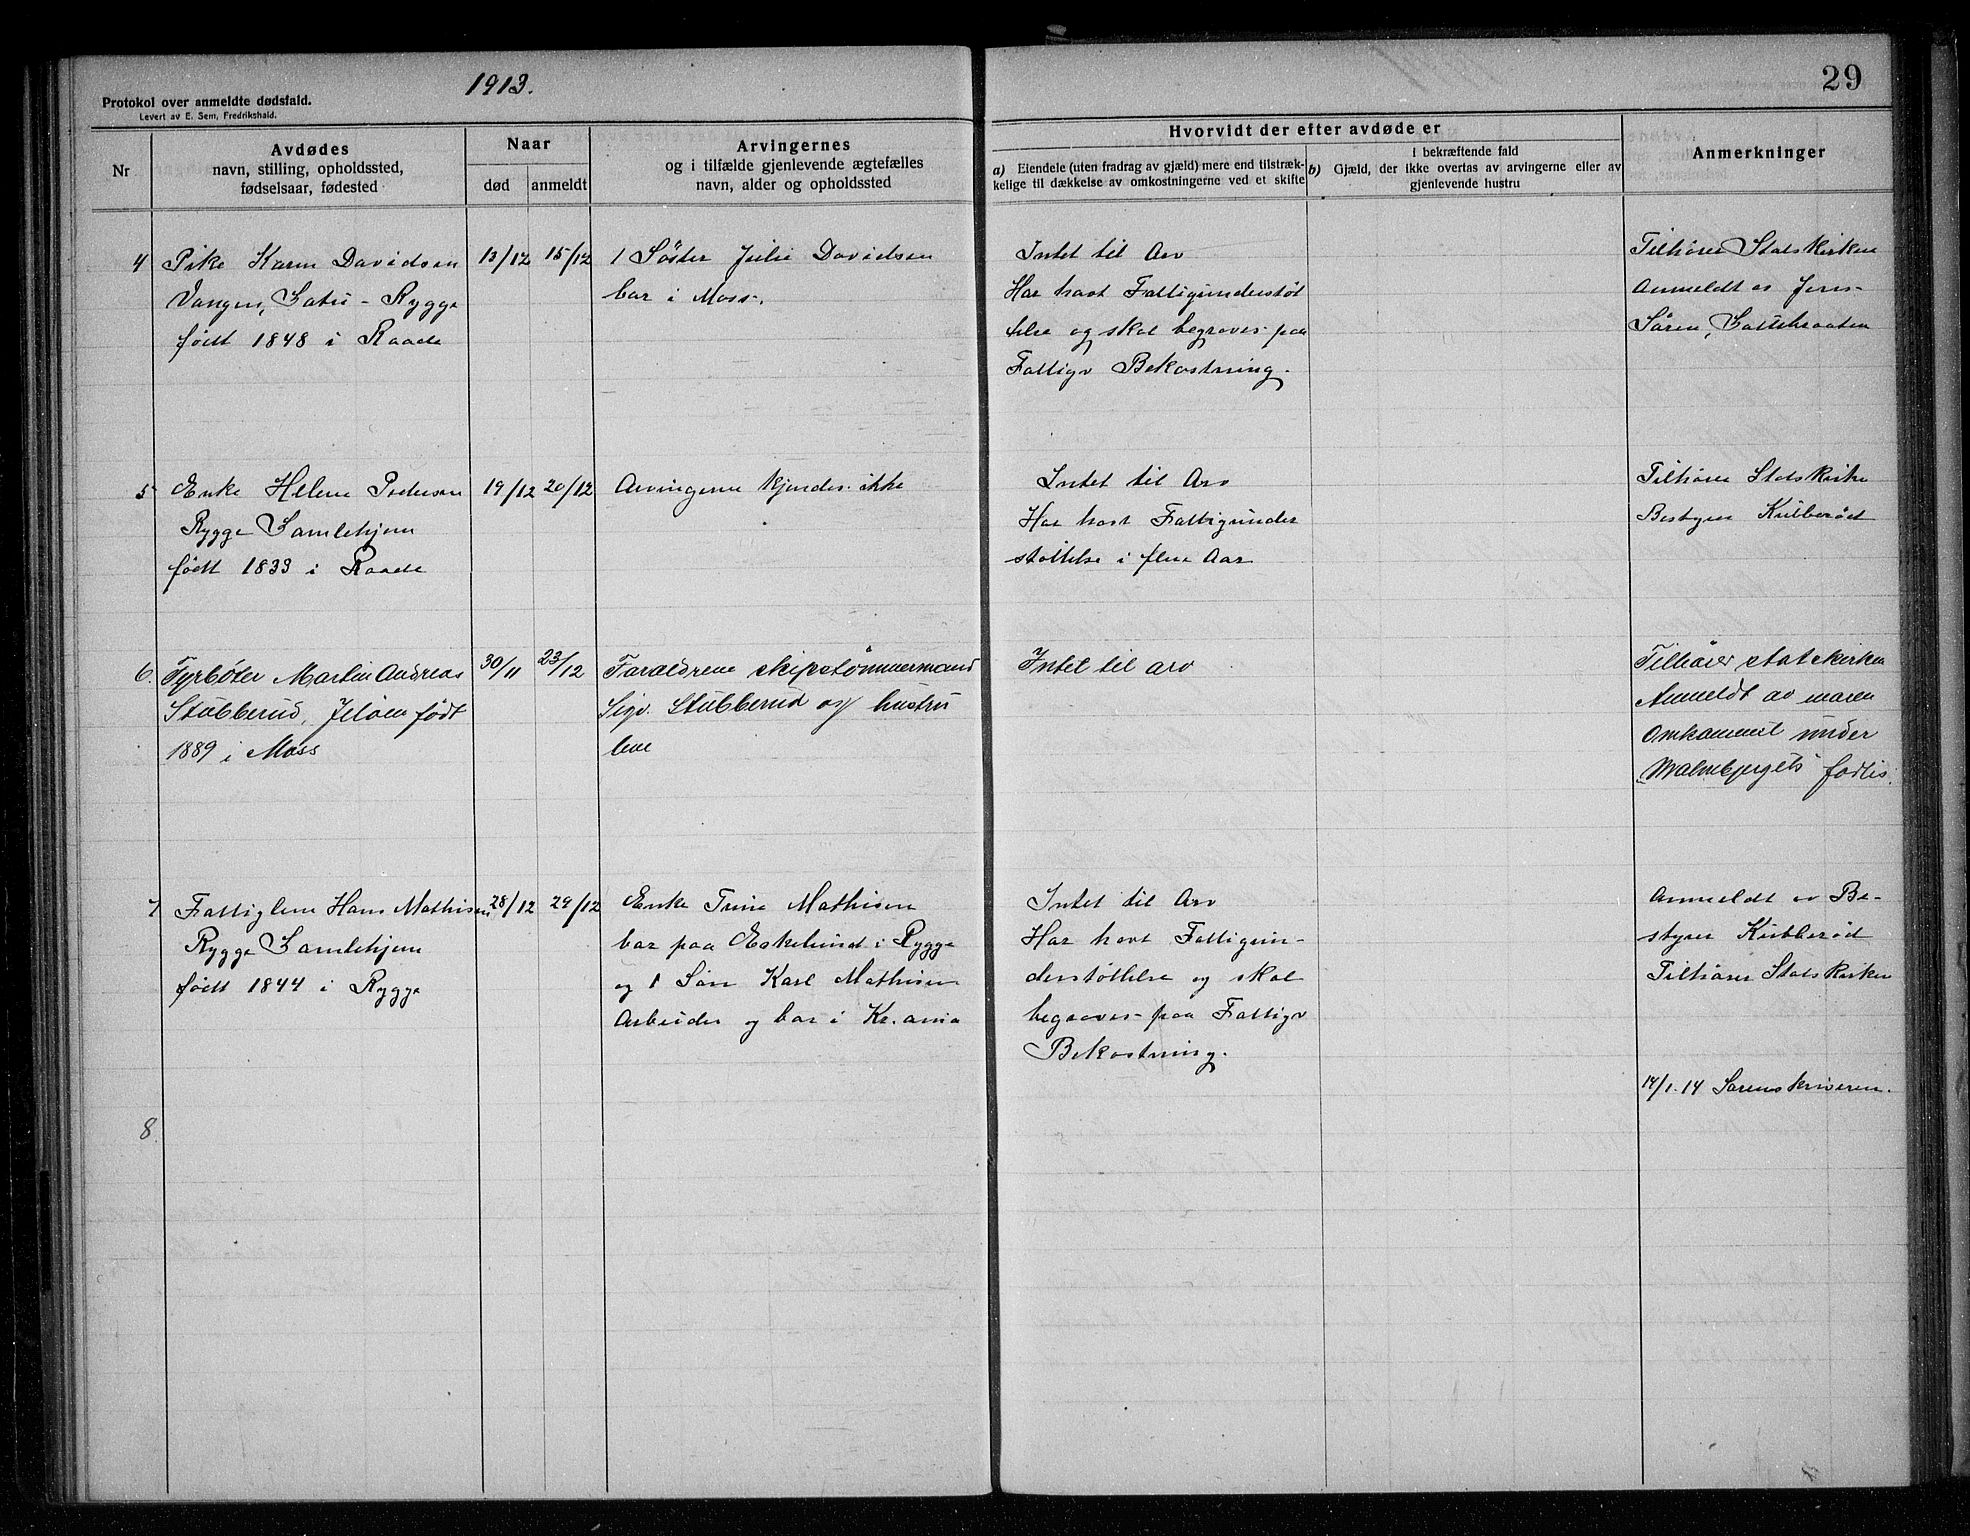 1913.
29
Protokol over anmeldte dødsfald.
Levert av E. Sem, Fredrikshald.
Nr
Avdødes
navn, stilling, opholdssted,
fødselsaar, fødested
Naar
død
anmeldt
Arvingernes
og i tilfælde gjenlevende ægtefælles
navn, alder og opholdssted
Hvorvidt der efter avdøde er
a) Eiendele (uten fradrag av gjæld) mere end tilstræk-
kelige til dækkelse av omkostningerne ved et skifte
I bekræftende fald
b) Gjæld, der ikke overtas av arvingerne eller av
gjenlevende hustru
Anmerkninger
4
Pike Karen Davidsen
Vangen, - Rygge
født 1848 i Raade
13/12
15/12
1 Søster Julie Davidsen
bor i Moss.
Intet til Arv
Har havt Fattigunderstøt
telse og skal begraves paa
Fattigv Bekostning.
Tilhører Statskirken
Anmeldt av
5
Enke Helene Pedersen
Rygge Samlehjem
født 1833 i Raade
19/12
20/12
Arvingerne kjendes ikke
Intet til Arv
Har havt Fattigunder
støttelse i flere Aar
Tilhører Statskirke
Bestyrer Kubberød
6.
Fyrbøter Martin Andreas
Stubberud, Jeløen født
1889 i Moss
30/11
23/12
Foraldrene skipstømmermand
Sigv. Stubberud og hustru
lene
Intet til arv
Tilhører statskirken
Anmeldt av moren
Omkommet under
"Malmbjergets" forlis.
7
Fattiglem Hans Mathisen
Rygge Samlehjem
født 1844 i Rygge
28/12
29/12
Enke Trine Mathisen
bor paa Eskelund i Rygge
og 1 Søn Karl Mathisen
Arbeider og bor i Kr.ania
Intet til Arv
Har havt Fattigun-
derstøttelse og skal
begraves paa Fattigv
Bekostning.
Anmeldt av Be-
styrer Kubberød
Tilhører Statskirken
14/1.14 Sorenskriveren.
8.